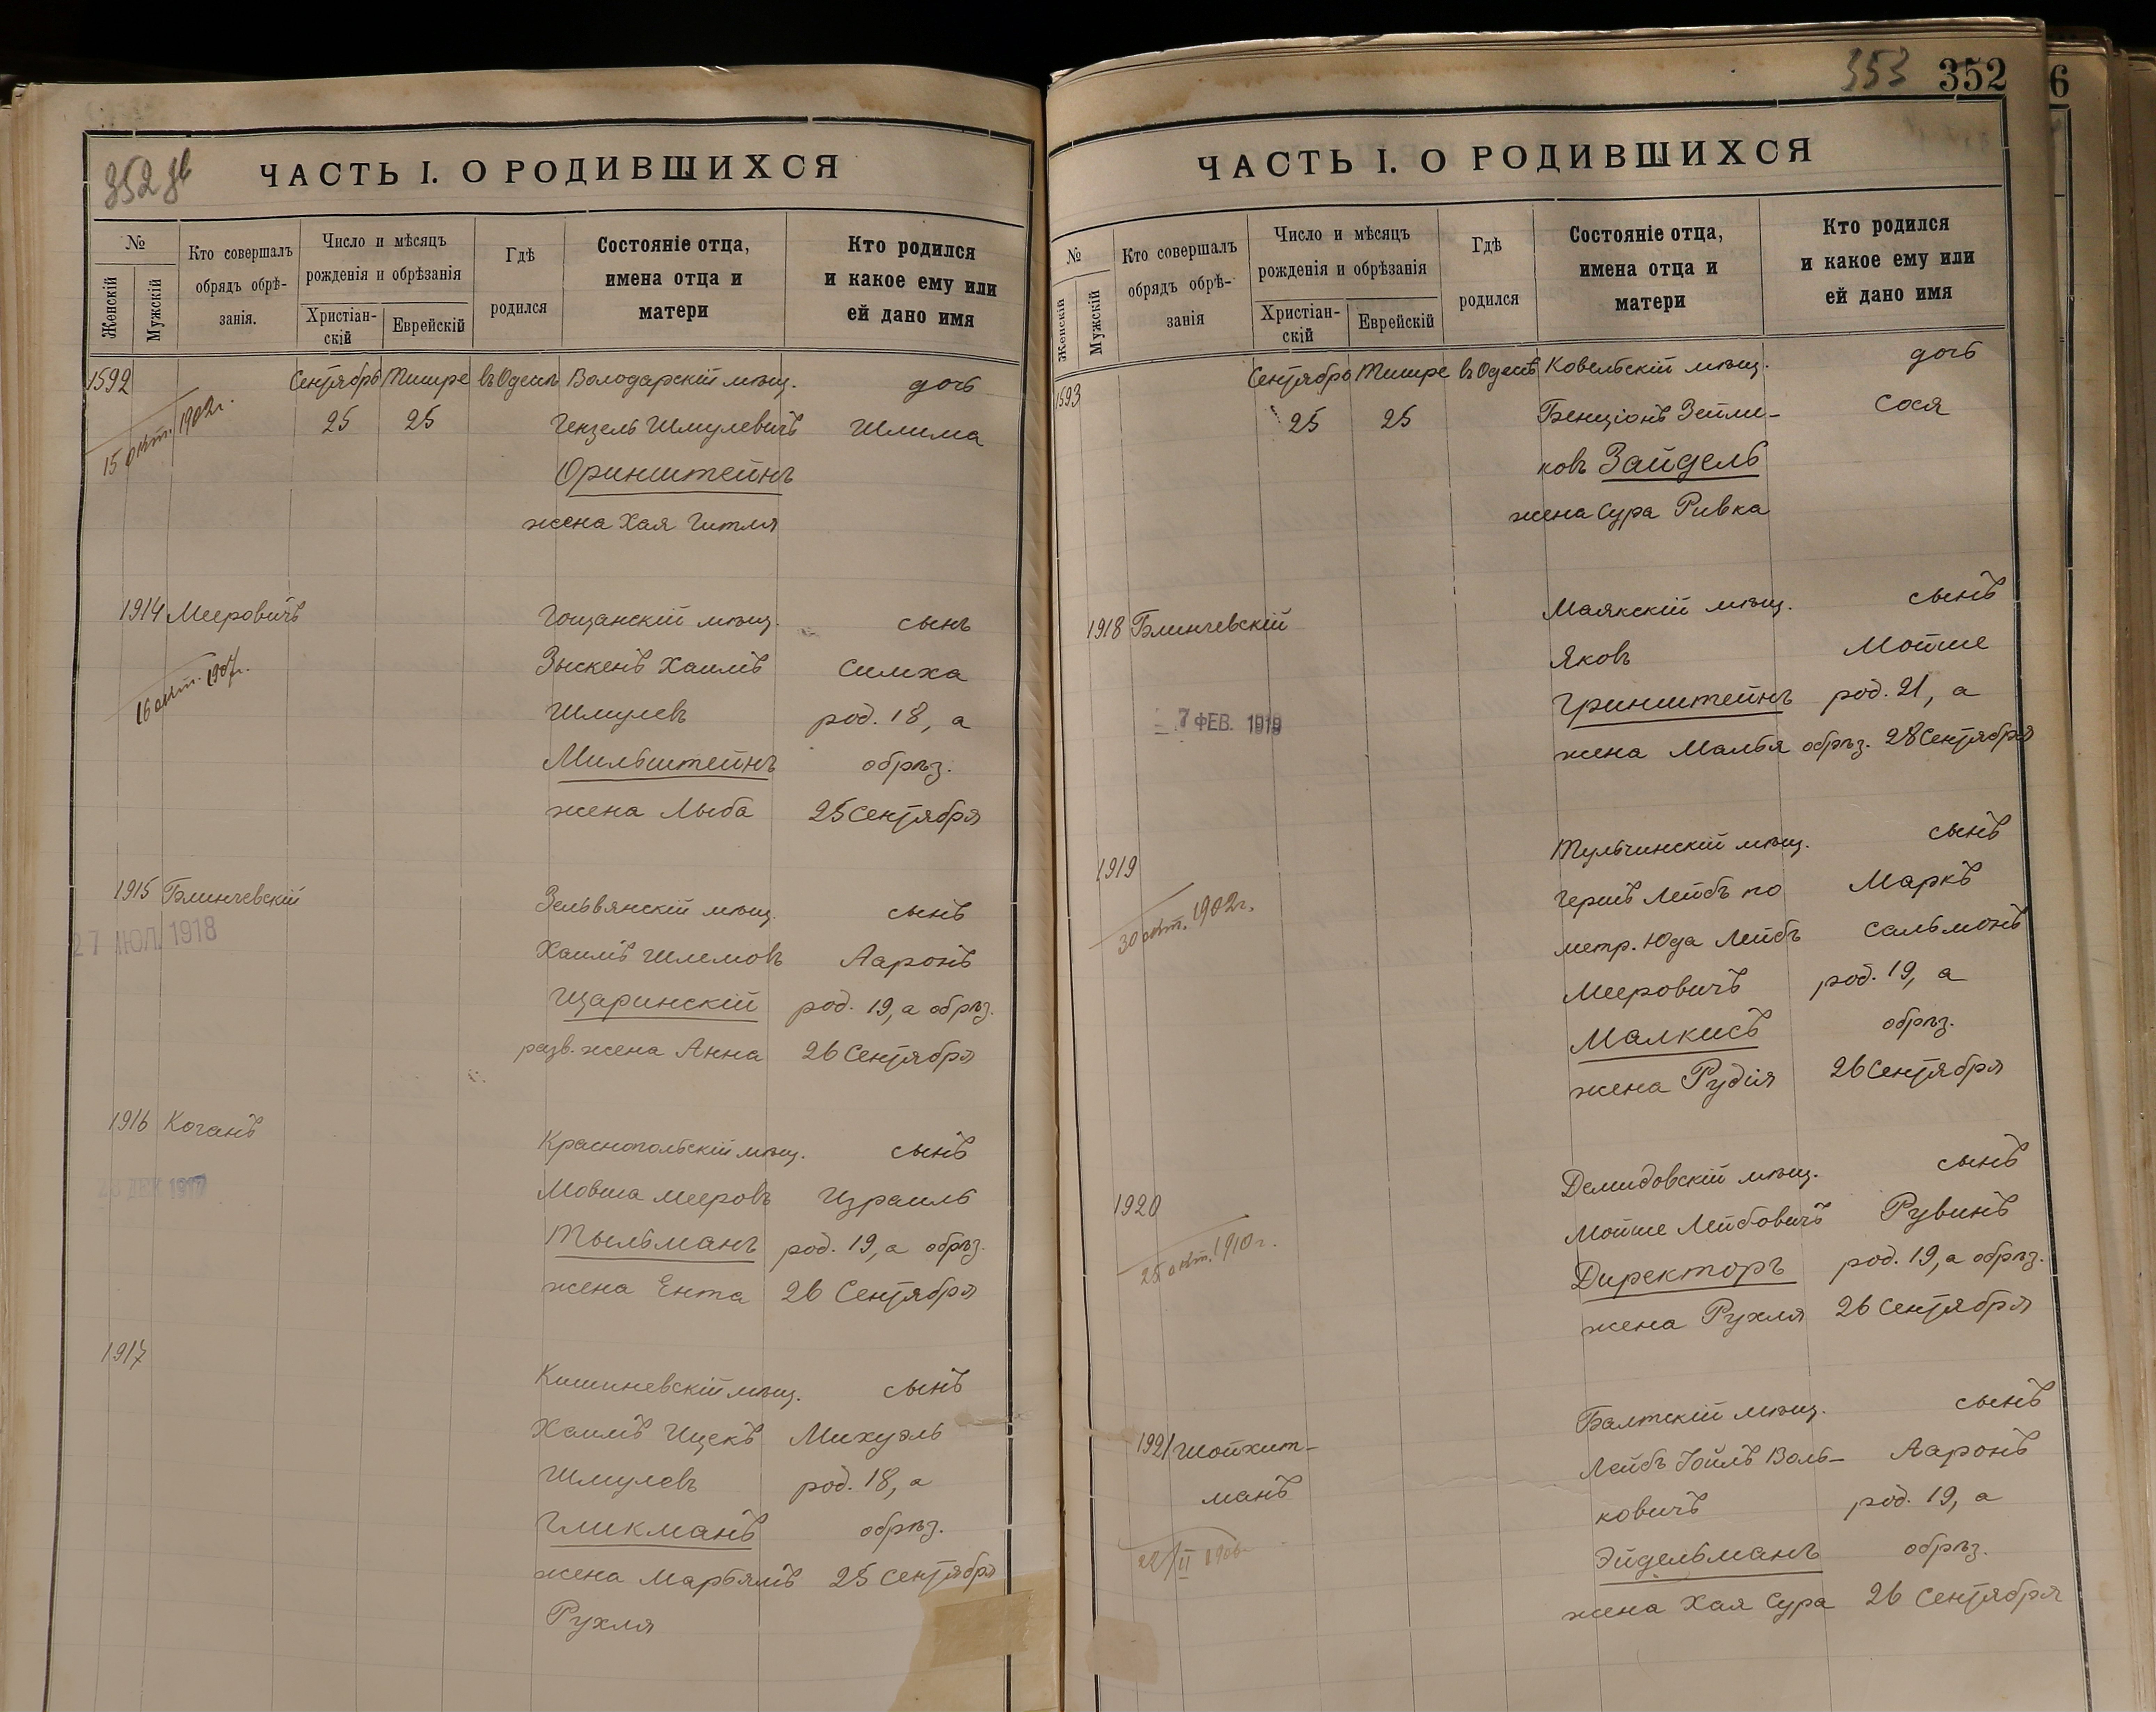 352 зв
ЧАСТЬ I. О РОДИВШИХСЯ
№
Женскій
Мужскій
Кто совершалъ
обрядъ обрѣ-
занія.
Число и мѣсяцъ
рожденія и обрѣзанія
Христіан-
скій
Еврейскій
Гдѣ
родился
Состояніе отца,
имена отца и
матери
Кто родился
и какое ему или
ей дано имя
1592 Сентябрь Тишре въ Одессѣ Володарскій мѣщ. дочь
15 окт. 1902г. 25 25 Гензель Шмулевичъ Шлима
Оринштейнъ
жена Хая Гитля
1914 Мееровичъ Гощанскій мѣщ. сынъ
Зыскенъ Хаимъ Симха
16 окт. 1907г. Шмулевъ род. 18, а
Мильштейнъ обрѣз.
жена Лыба 25 Сентября
1915 Блинчевскій Зельвянскій мѣщ. сынъ
27 ИЮЛ 1918 Хаимъ Шлемовъ Ааронъ
Щаринскій род. 19, а обрѣз.
разв. жена Анна 26 Сентября
1916 Коганъ Краснопольскій мѣщ. сынъ
ДЕК 1917 Мовша Мееровъ Израиль
Тыльманъ род. 19, а обрѣз.
жена Ента 26 Сентября
1917 Кишиневскій мѣщ. сынъ
Хаимъ Ицекъ Михуэль
Шмулевъ род. 18, а
Гликманъ обрѣз.
жена Марьямъ 25 Сентября
Рухля
353 352
6
ЧАСТЬ I. О РОДИВШИХСЯ
№
Женскій
Мужскій
Кто совершалъ
обрядъ обрѣ-
занія
Число и мѣсяцъ
рожденія и обрѣзанія
Христіан-
скій
Еврейскій
Гдѣ
родился
Состояніе отца,
имена отца и
матери
Кто родился
и какое ему или
ей дано имя
1593 Сентябрь Тишре въ Одессѣ Ковельскій мѣщ. дочь
25 25 Бенціонъ Зейли- Сося
ковъ Зайдель
жена Сура Ривка
1918 Блинчевскій Маякскій мѣщ. сынъ
Яковъ Мойше
7 ФЕВ. 1919 Гринштейнъ род. 21, а
жена Малья обрѣз. 28 Сентября
1919 Тульчинскій мѣщ. сынъ
Гершъ Лейбъ по Маркъ
30 окт. 1902г. метр. Юда Лейбъ Сальмонъ
Мееровичъ род. 19, а
Малкисъ обрѣз.
жена Рудія 26 Сентября
1920 Демидовскій мѣщ. сынъ
Мойше Лейбовичъ Рувинъ
25 окт. 1910г. Директоръ род. 19, а обрѣз.
жена Рухля 26 Сентября
1921 Шойхит- Балтскій мѣщ. сынъ
манъ Лейбъ Іойлъ Воль- Ааронъ
ковичъ род. 19, а
Эйдельманъ обрѣз.
жена Хая Сура 26 Сентября